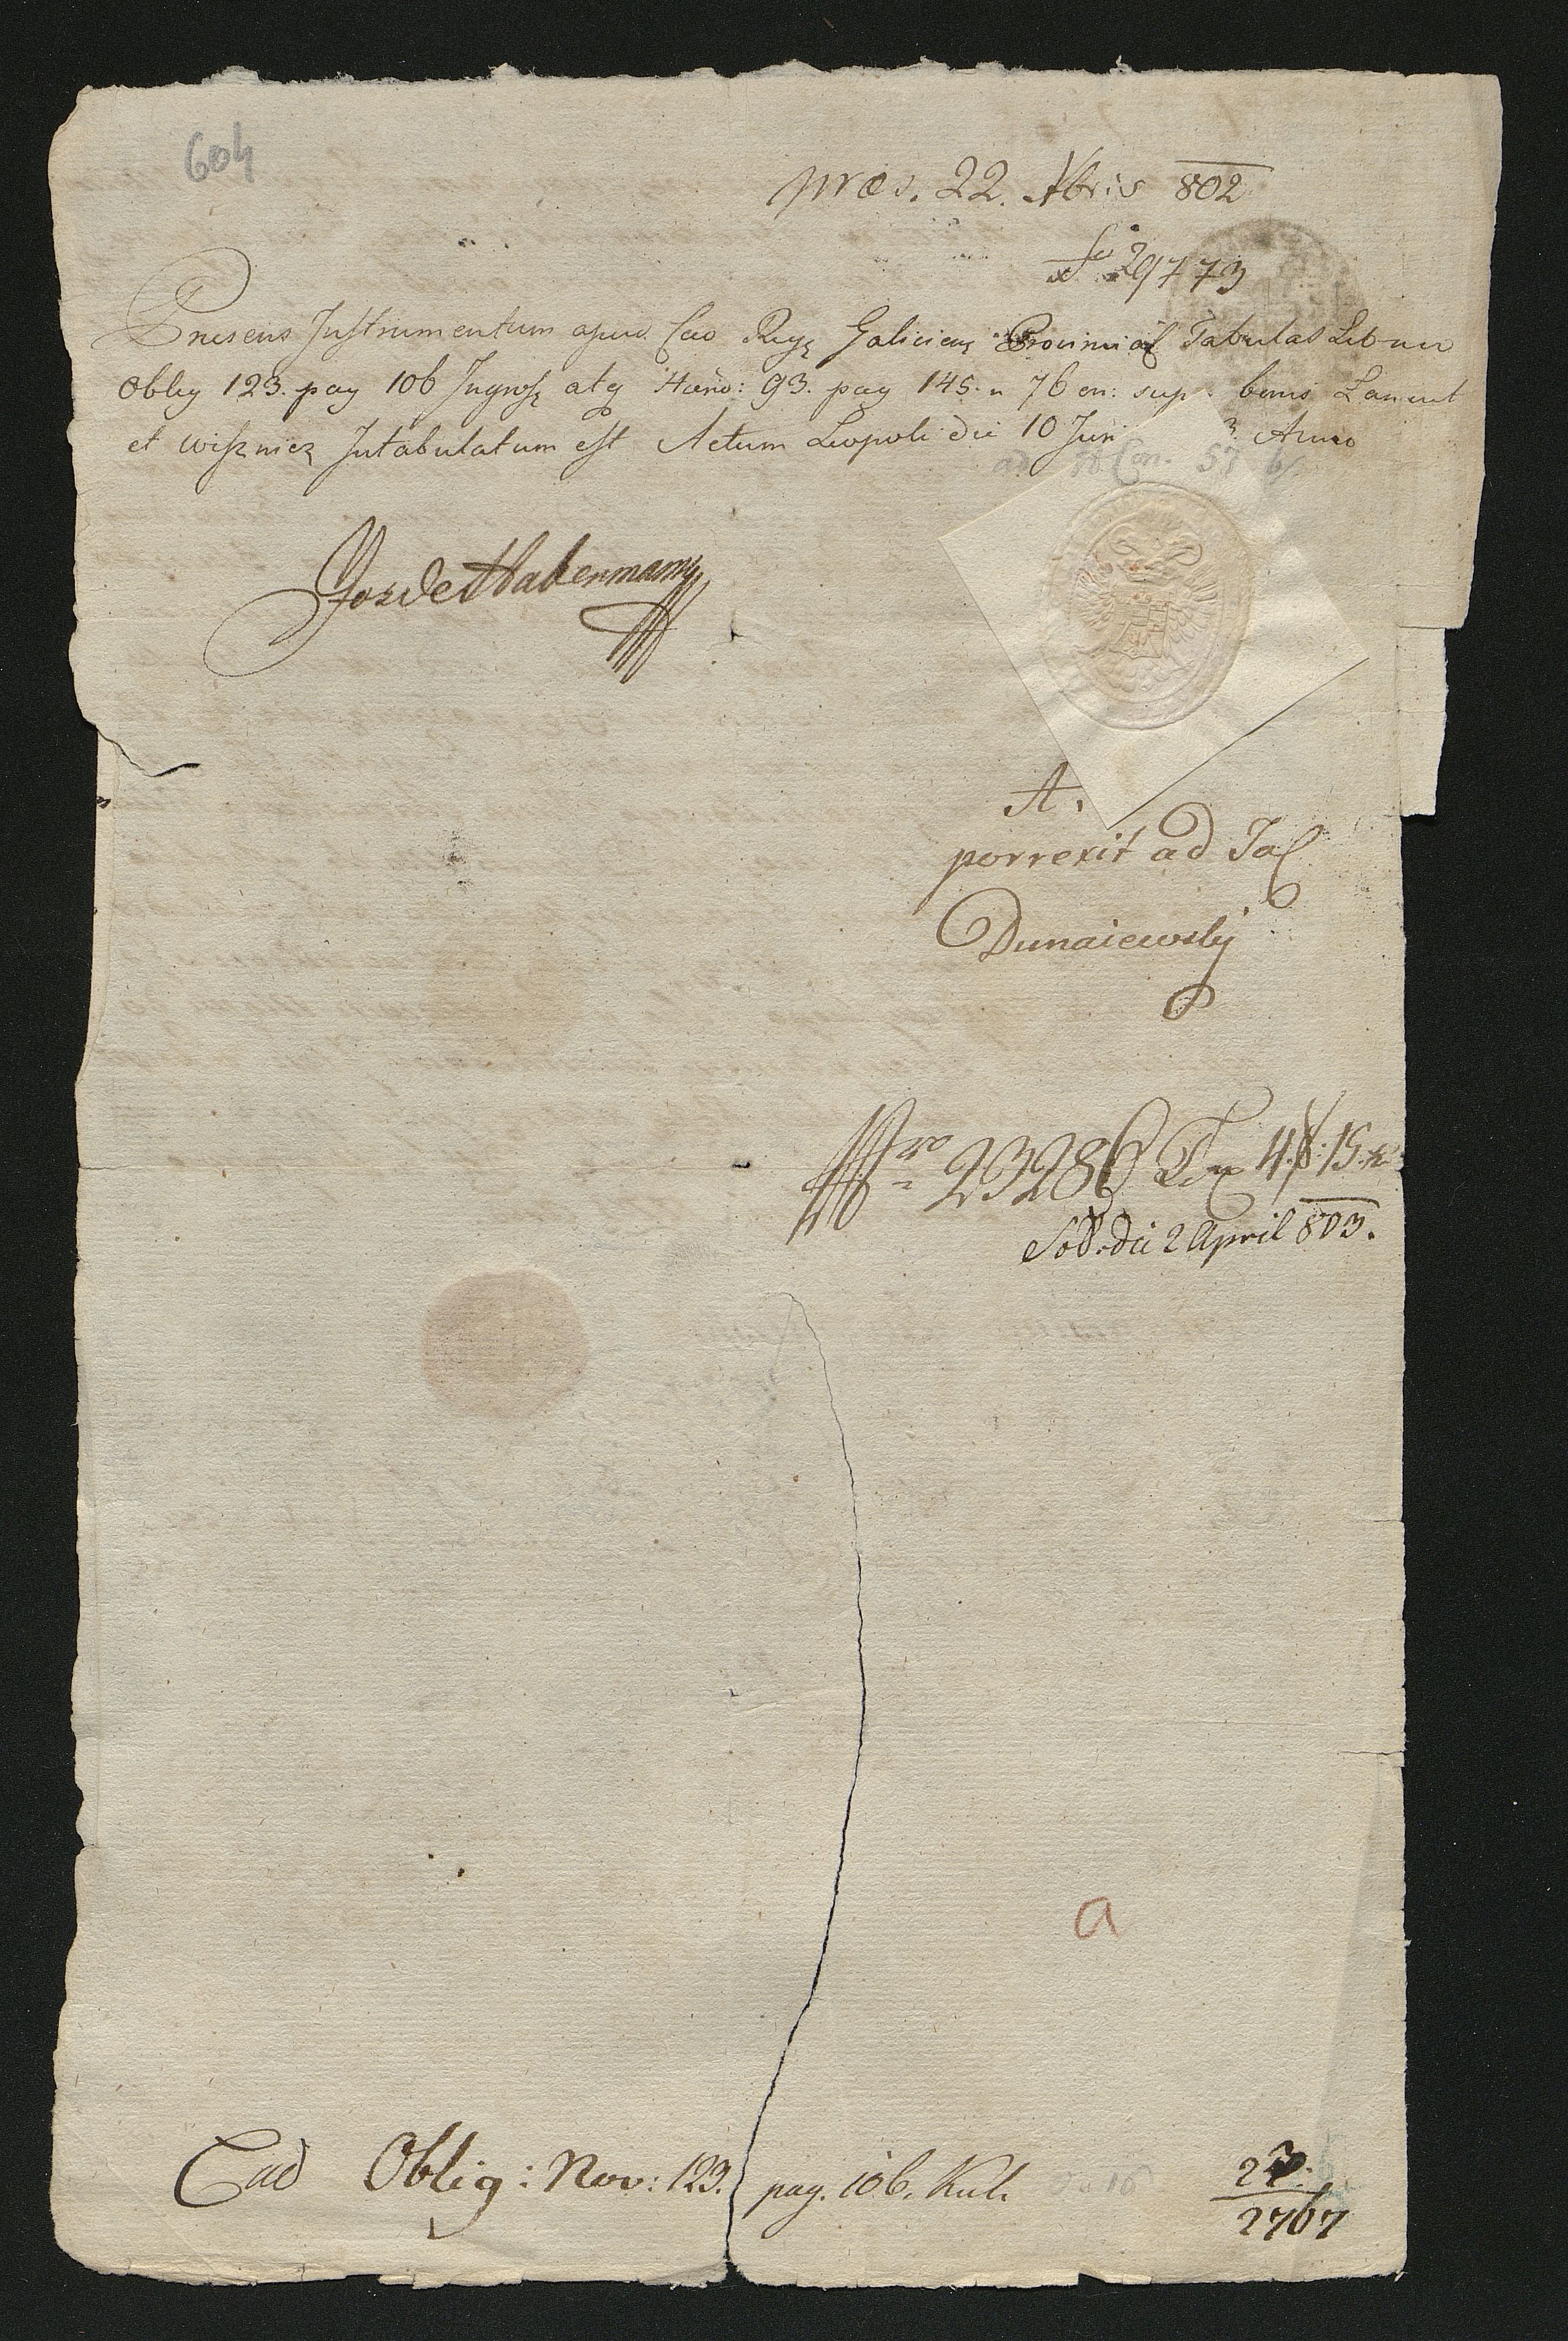 604
præs. 22. Xbris 802
29773
Præsens Instrumentum apud Cæo Regę Galicienę Provincial Tabulas Libro
Oblig 123. pag 106 Ingrosę atq Hæred: 93. pag 145. n 76 on: sup. bonis Lancut
et Wisznicz Intabulatum est Actum Leopoli die 10 Juni 3. Anno
Jos de Habermann
A.
porrexit ad Tal
Dunaiewsky
Nro 23286 Tax 4 f: 15 x
Sol: die 2 April 803.
a
Cad Oblig: Nov: 123. pag. 106.
2767